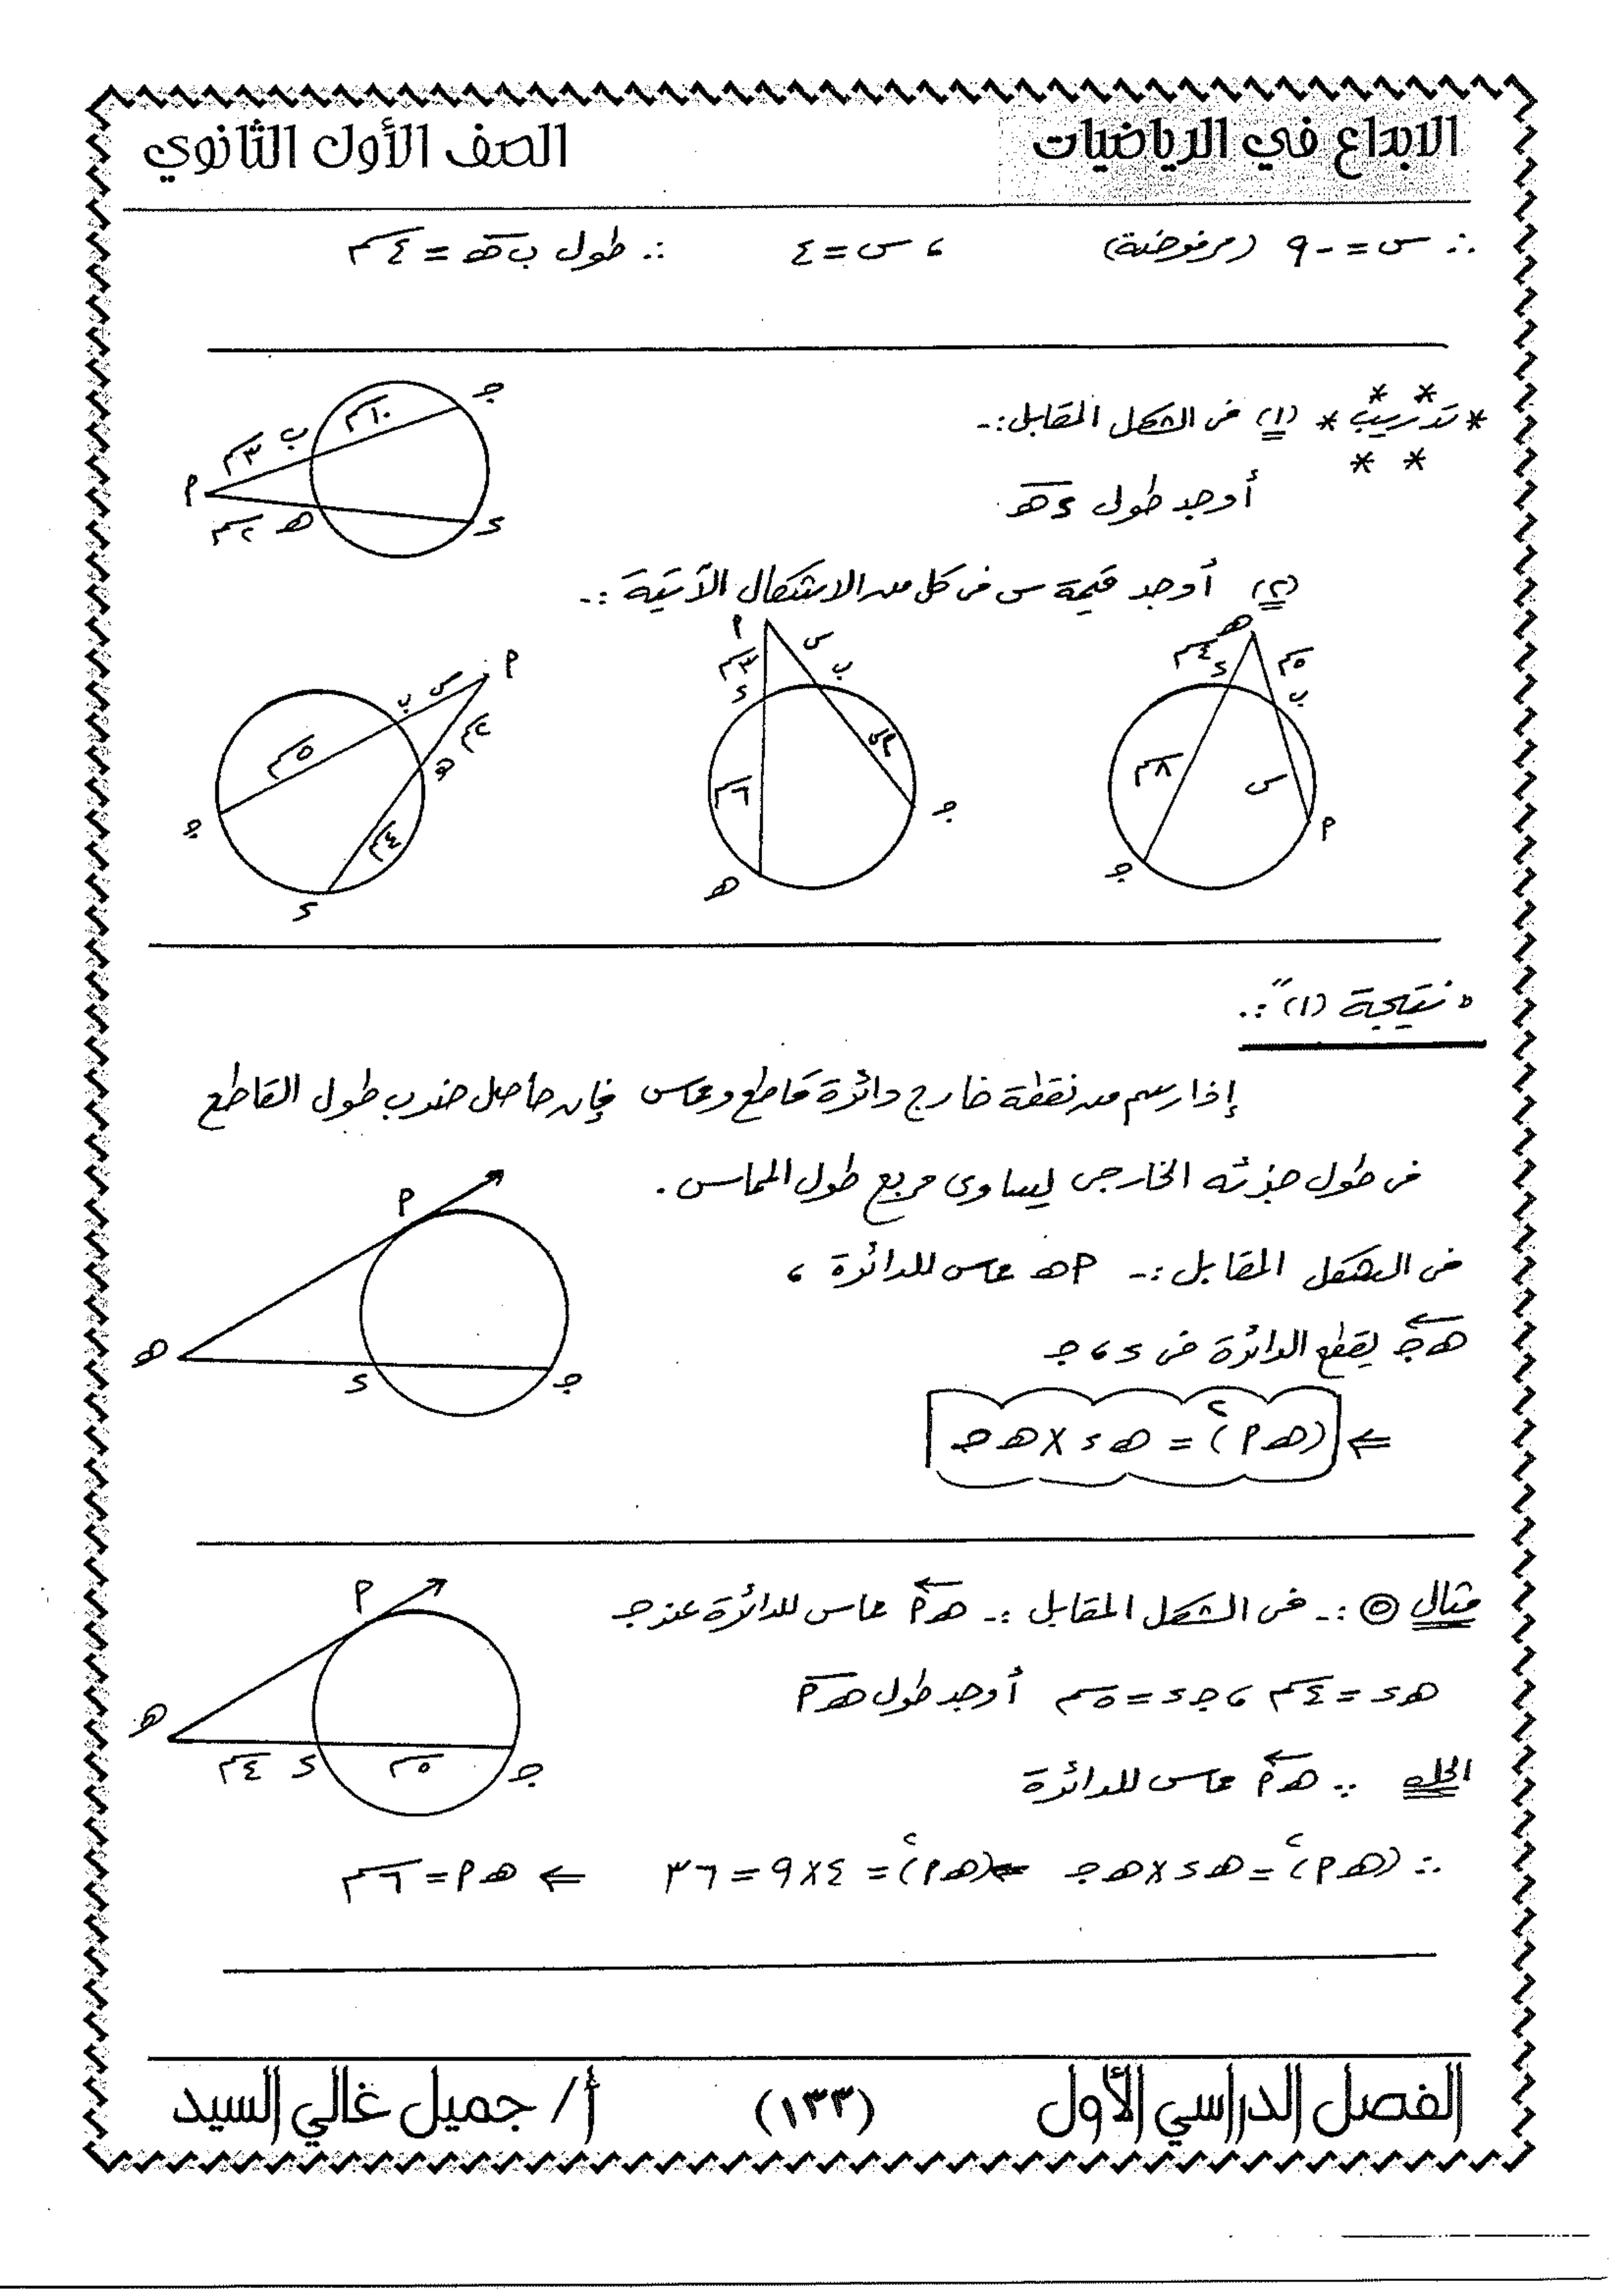 الابداع في الرياضيات
الصف الأول الثانوي
∴ س = -٩ (مرفوضة) ، س = ٤ ∴ طول ب هـ = ٤ سم
* تدريب * (١) فى الشكل المقابل :-
أوجد طول د هـ
جـ
١٠ سم
ب
٣ سم
م
٢ سم
هـ
د
(٢) أوجد قيمة س فى كل من الاشكال الآتية :-
هـ
٤ سم
٥ سم
د
ب
٨ سم
س
م
جـ
م
س
٣ سم
ب
د
٦ سم
جـ
هـ
م
س
ب
٢ سم
٥ سم
هـ
٤ سم
جـ
د
" نتيجة (١) " :.
إذا رسم من نقطة خارج دائرة قاطع ومماس فإن حاصل ضرب طول القاطع
فى طول جزئه الخارجى يساوى مربع طول المماس .
فى الشكل المقابل :- م هـ مماس للدائرة ،
هـ جـ يقطع الدائرة فى د ، جـ
⇐ (هـ م)٢ = هـ د × هـ جـ
م
هـ
د
جـ
مثال (٥) :- فى الشكل المقابل :- هـ م مماس للدائرة عند جـ
هـ د = ٤ سم ، جـ د = ٥ سم أوجد طول هـ م
الحل ∵ هـ م مماس للدائرة
∴ (هـ م)٢ = هـ د × هـ جـ ⇐ (هـ م)٢ = ٤ × ٩ = ٣٦ ⇐ هـ م = ٦ سم
م
هـ
٤ سم
د
٥ سم
جـ
الفصل الدراسي الأول
(١٣٣)
أ / جميل غالي السيد